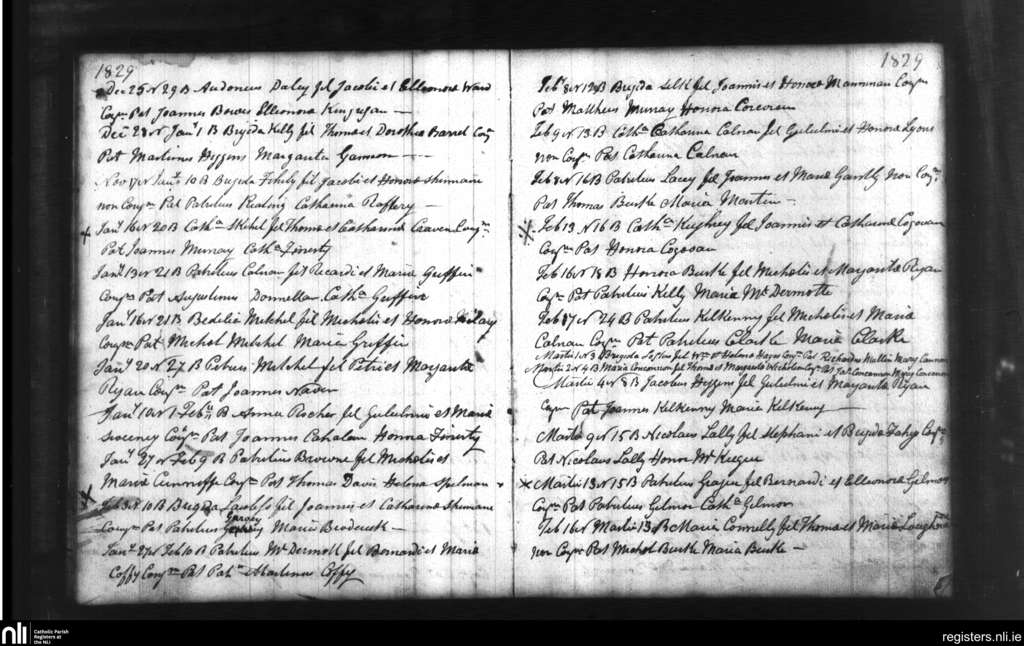 1829
Dec 25 N 29 B Audoneus Daley fil Jacobi et Elleonora Ward
Conjm Pat Joannes Bowes Elleonora
Dec 28 N Jany 1 B Brigida Kelly fil Thoma et Dorothea Barret Conj
Pat Martinus Higgens Margarita Gannon
Nov 17 N Jany 10 B Brigida fil Jacobi et Honora
non Conjm Pat Patritius Kealing Catharina Raftery
Jany 16 N 20 B Catha fil Thoma et Catharina Craven Conjm
Pat Joannes Murray Catha Finerty
Jany 13 N 21 B Patritius Calnan fil Ricardi et Maria Griffin
Conjm Pat Augustinus Donnellan Catha Griffin
Jany 16 N 21 B Bedelia Mitchel fil Michalis et Honora
Conjm Pat Michal Mitchel Maria Griffin
Jany 20 N 27 B Petrus Mitchel fil Petri et Margarita
Ryan Conjm Pat Joannes Naven
Jany 10 N 1 Feby B Anna Rocher fil Gulielmi et Maria
Sweeney Conjm Pat Joannes Cahalan Honora Finerty
Jany 27 N Feb 9 B Patritius Browne fil Michalis et
Maria Cunniffe Conjm Pat Thomas Davis Helena Spelman
Feb N 10 B Brigida fil Joannis et Catharina
Conjm Pat Patritius Garvey Maria Broderick
Jany N Feb 10 B Patritius McDermott fil Bernardi et Maria
Coffy Conjm Pat Patk Martinus Coffy
1829
Feb 8 N 12 B Brigida fil Joannis et Honora Mannman Conjm
Pat Mattheus Murray Honora Corcoran
Feb 9 N 13 B Catha Catharina Calnan fil Gulielmi et Honora Lyons
non Conjm Pat Catharina Calnan
Feb 8 N 16 B Patritius Lacey fil Joannis et Maria non Conjm
Pat Thomas Burke Maria Martin
Feb 13 N 16 B Catha Kughrey fil Joannis et Catharina Cogavan
Conjm Pat Honora Cogavan
Feb 16 N 18 B Honora Burke fil Michalis et Margarita Ryan
Conjm Pat Patritius Kelly Maria McDermotte
Feb 17 N 24 B Patritius Kilkenny fil Michalis et Maria
Calnan Conjm Pat Patritius Clarke Maria Clarke
Martii 1 N 3 Brigida fil Wm et Helena Hayes Conjm Pat Richardus Mullin Mary Cannon
Martii 2 N 4 B Maria Concannon fil Thoma et Margarita Conjm Pat Jas Concannon Mary Concannon
Martii 4 N 8 B Jacobus Higgins fil Gulielmi et Margarita Ryan
Conjm Pat Joannes Kilkenny Maria Kilkenny
Martii 9 N 15 B Nicolaus Lally fil Stephani et Brigida Fahey Conjm
Pat Nicolaus Lally Honor McKeegue
Martii 13 N 15 B Patritius fil Bernardi et Elleonora Gilmor
Conjm Pat Patritius Gilmor Catha Gilmor
Feb 16 N Martii 13 B Maria Connelly fil Thoma et Maria
non Conjm Pat Michal Burke Maria Burke
nli
Catholic Parish
Registers at
the NLI
registers.nli.ie